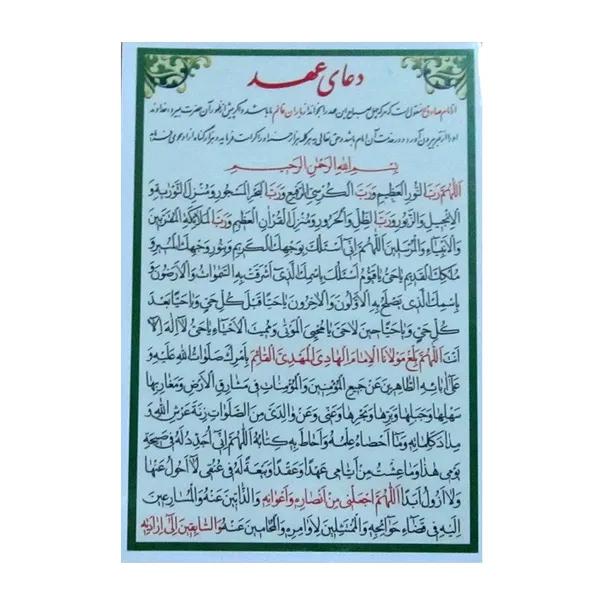 دعای عهد
از امام صادق منقول است که هر که چهل صباح این عهد را بخواند از یاران قائم ما باشد و اگر پیش از ظهور آن حضرت بمیرد خداوند
او را از قبر بیرون آورد و در خدمت آن امام باشد و حق تعالی به هر کلمه هزار حسنه او را کرامت فرماید و هزار گناه از او محو
بِسْمِ اللهِ الرَّحْمٰنِ الرَّحيمِ
اَللّٰهُمَّ رَبَّ النُّورِ الْعَظيمِ وَ رَبَّ الْكُرْسِيِّ الرَّفيعِ وَ رَبَّ الْبَحْرِ الْمَسْجُورِ وَ مُنْزِلَ التَّوْرٰيةِ وَ
الْاِنْجيلِ وَ الزَّبُورِ وَ رَبَّ الظِّلِّ وَ الْحَرُورِ وَ مُنْزِلَ الْقُرْاٰنِ الْعَظيمِ وَ رَبَّ الْمَلٰٓئِكَةِ الْمُقَرَّبينَ
وَ الْاَنْبِيٰٓاءِ وَ الْمُرْسَلينَ اَللّٰهُمَّ اِنّي اَسْئَلُكَ بِوَجْهِكَ الْكَريمِ وَ بِنُورِ وَجْهِكَ الْمُنيرِ وَ
مُلْكِكَ الْقَديمِ يٰا حَيُّ يٰا قَيُّومُ اَسْئَلُكَ بِاسْمِكَ الَّذي اَشْرَقَتْ بِهِ السَّمٰوٰاتُ وَ الْاَرَضُونَ وَ
بِاسْمِكَ الَّذي يَصْلَحُ بِهِ الْاَوَّلُونَ وَ الْاٰخِرُونَ يٰا حَيًّا قَبْلَ كُلِّ حَيٍّ وَ يٰا حَيًّا بَعْدَ
كُلِّ حَيٍّ وَ يٰا حَيًّا حينَ لٰا حَيَّ يٰا مُحْيِيَ الْمَوْتٰى وَ مُميتَ الْاَحْيٰٓاءِ يٰا حَيُّ لٰٓا اِلٰهَ اِلّٰا
اَنْتَ اَللّٰهُمَّ بَلِّغْ مَوْلٰانَا الْاِمٰامَ الْهٰادِيَ الْمَهْدِيَّ الْقٰٓائِمَ بِاَمْرِكَ صَلَوٰاتُ اللهِ عَلَيْهِ وَ
عَلٰٓى اٰبٰٓائِهِ الطّٰاهِرينَ عَنْ جَميعِ الْمُؤْمِنينَ وَ الْمُؤْمِنٰاتِ في مَشٰارِقِ الْاَرْضِ وَ مَغٰارِبِهٰا
سَهْلِهٰا وَ جَبَلِهٰا وَ بَرِّهٰا وَ بَحْرِهٰا وَ عَنّي وَ عَنْ وٰالِدَيَّ مِنَ الصَّلَوٰاتِ زِنَةَ عَرْشِ اللهِ وَ
مِدٰادَ كَلِمٰاتِهِ وَ مٰٓا اَحْصٰاهُ عِلْمُهُ وَ اَحٰاطَ بِهِ كِتٰابُهُ اَللّٰهُمَّ اِنّي اُجَدِّدُ لَهُ في صَبيحَةِ
يَوْمي هٰذٰا وَ مٰا عِشْتُ مِنْ اَيّٰامي عَهْدًا وَ عَقْدًا وَ بَيْعَةً لَهُ في عُنُقي لٰٓا اَحُولُ عَنْهٰا
وَ لٰٓا اَزُولُ اَبَدًا اَللّٰهُمَّ اجْعَلْني مِنْ اَنْصٰارِهِ وَ اَعْوٰانِهِ وَ الذّٰابّينَ عَنْهُ وَ الْمُسٰارِعينَ
اِلَيْهِ في قَضٰٓاءِ حَوٰٓائِجِهِ وَ الْمُمْتَثِلينَ لِاَوٰامِرِهِ وَ الْمُحٰامينَ عَنْهُ وَ السّٰابِقينَ اِلٰٓى اِرٰادَتِهِ